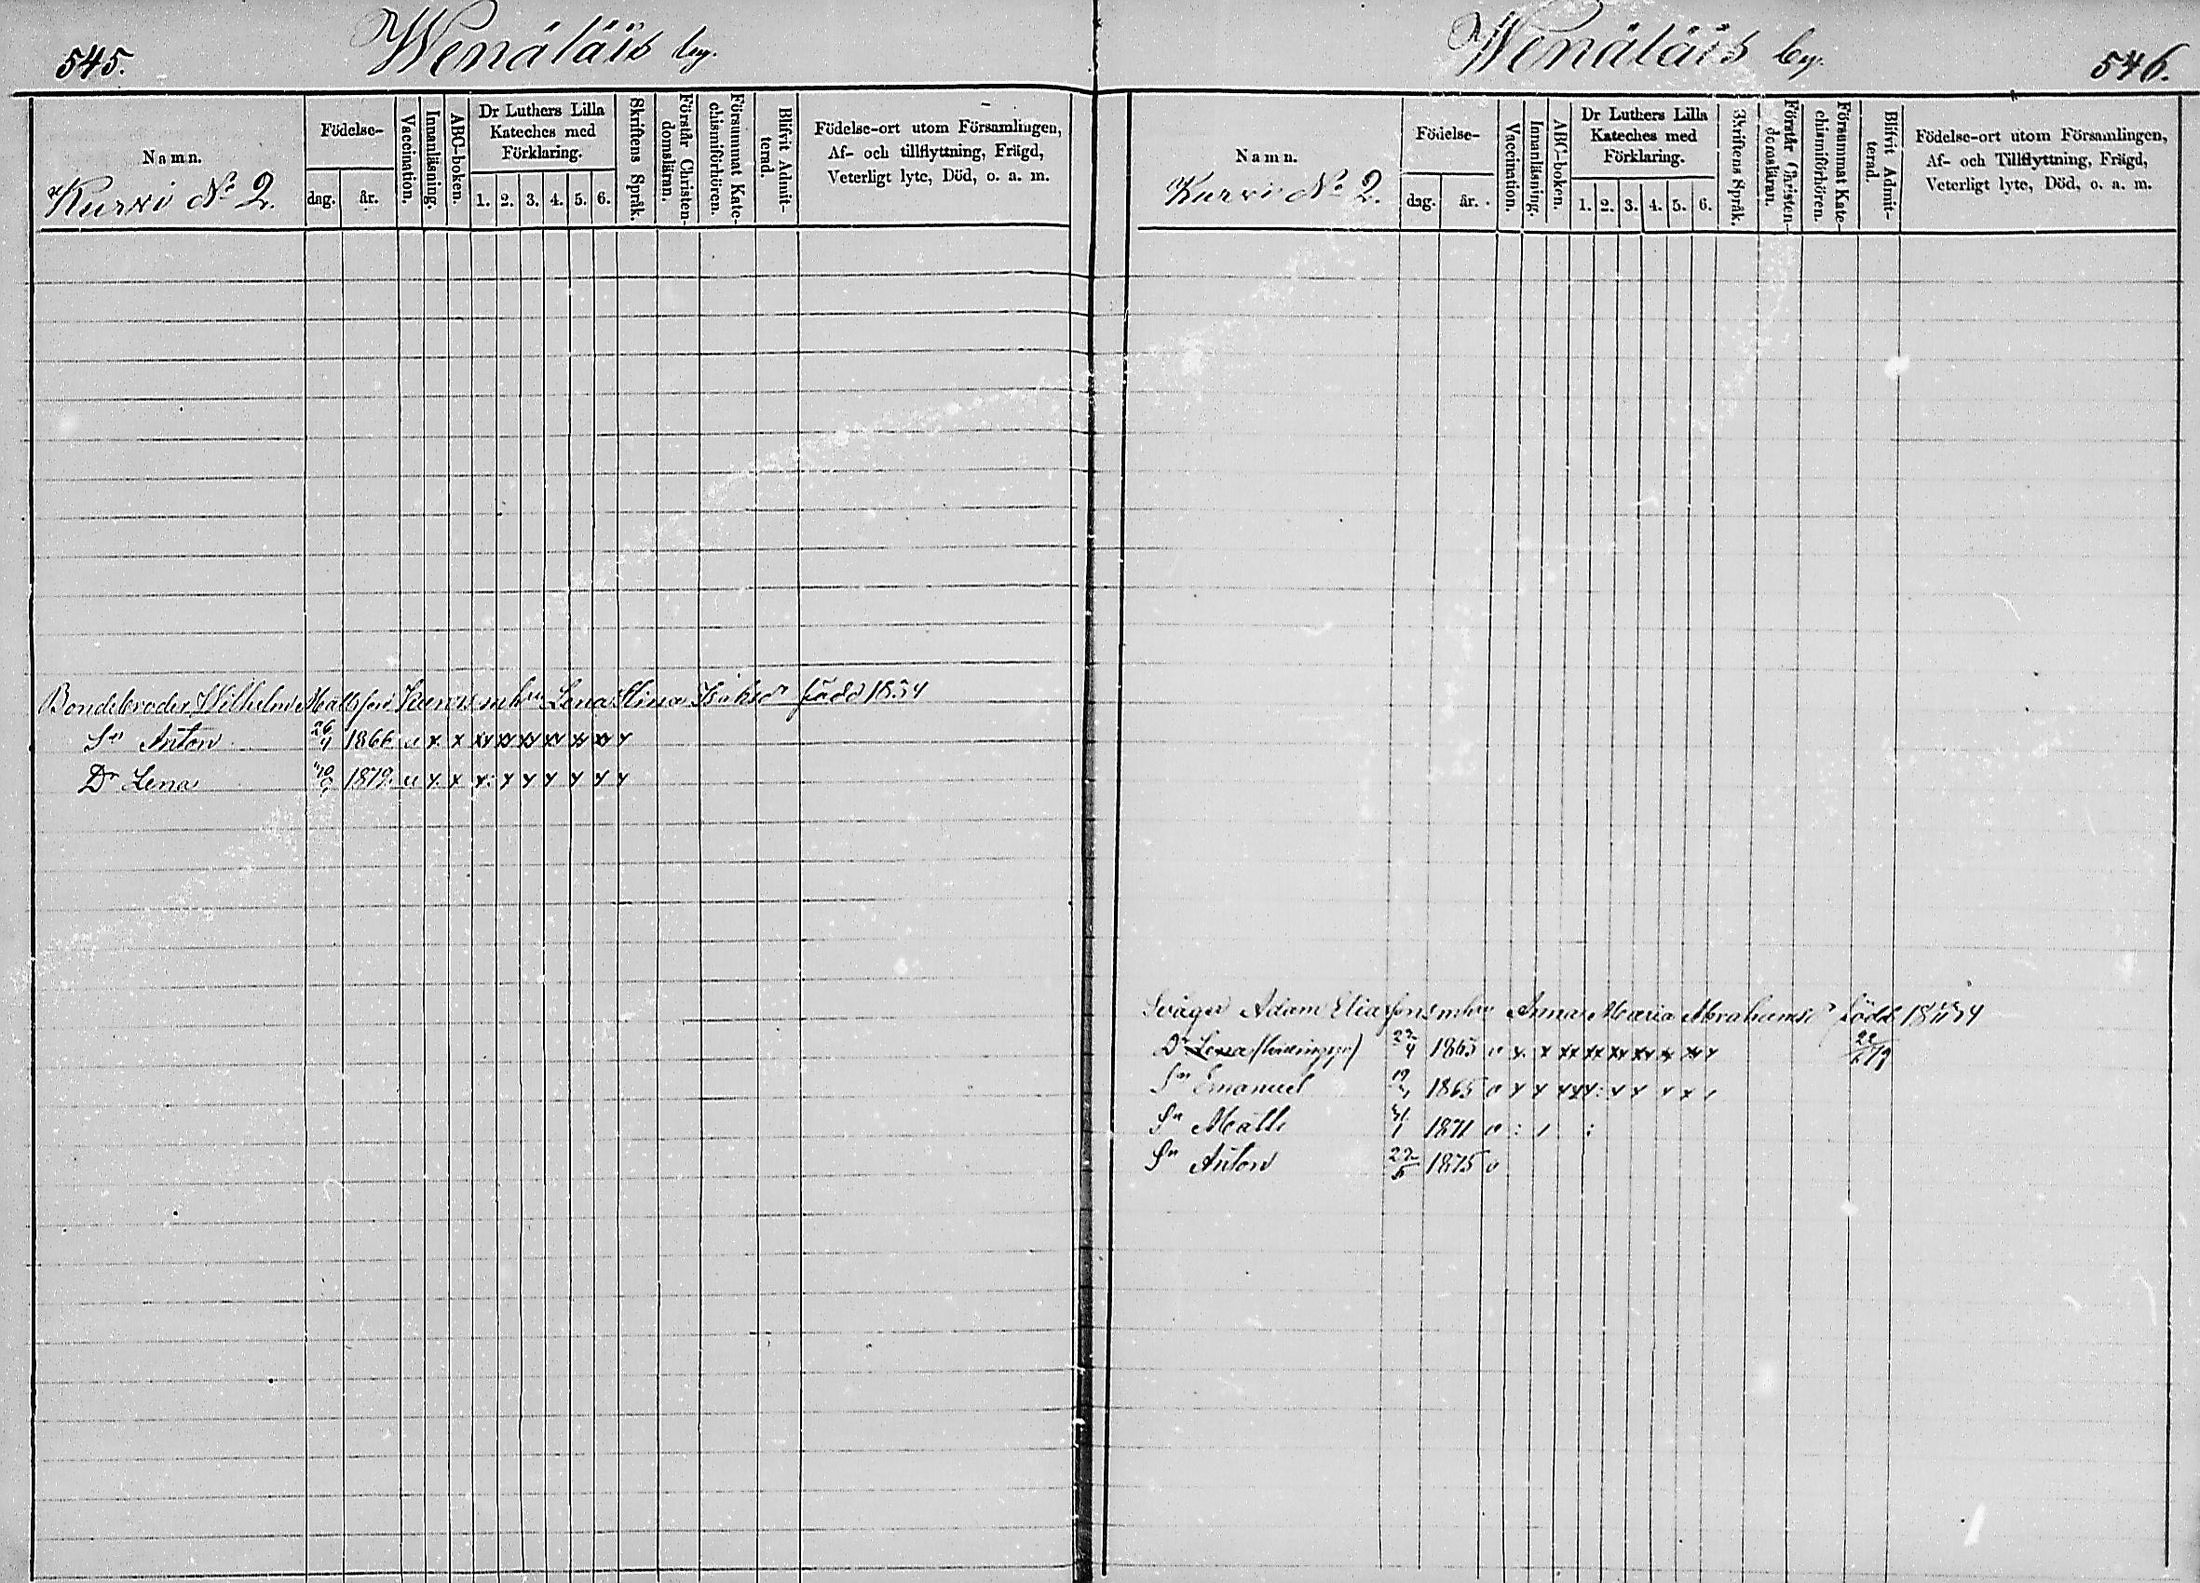 545.
Wenäläis by.
Namn.
Kurxi No 2.
Födelse-
dag.
år.
Vaccination.
Innanläsning.
ABC-boken.
Dr Luthers Lilla
Kateches med
Förklaring.
1. 2. 3. 4. 5. 6.
Skriftens Språk.
Förstår Christen-
domsläran.
Försummat Kate-
chismiförhören.
Blifvit Admit-
terad.
Födelse-ort utom Församlingen,
Af- och tillflyttning, Frägd,
Veterligt lyte, Död, o. a. m.
Bondebroder Wilhelm Mattsson Lena Stina född 1834
Sn Anton 1866
Dr Lena 1879.
Wenäläis by.
546.
Namn.
Kurxi No 2.
Födelse-
dag.
år.
Vaccination.
Innanläsning.
ABC-boken.
Dr Luthers Lilla
Kateches med
Förklaring.
1. 2. 3. 4. 5. 6.
Skriftens Språk.
Förstår Christen-
domsläran.
Försummat Kate-
chismiförhören.
Blifvit Admit-
terad.
Födelse-ort utom Församlingen,
Af- och Tillflyttning, Frägd,
Veterligt lyte, Död, o. a. m.
Svåger Adam Eliasson Anna Maria Abrahamsd. född
Dr Lena 22/4 1863
Sn Emanuel 1865
Sn Matts 1871
Sn Anton 22/5 1875